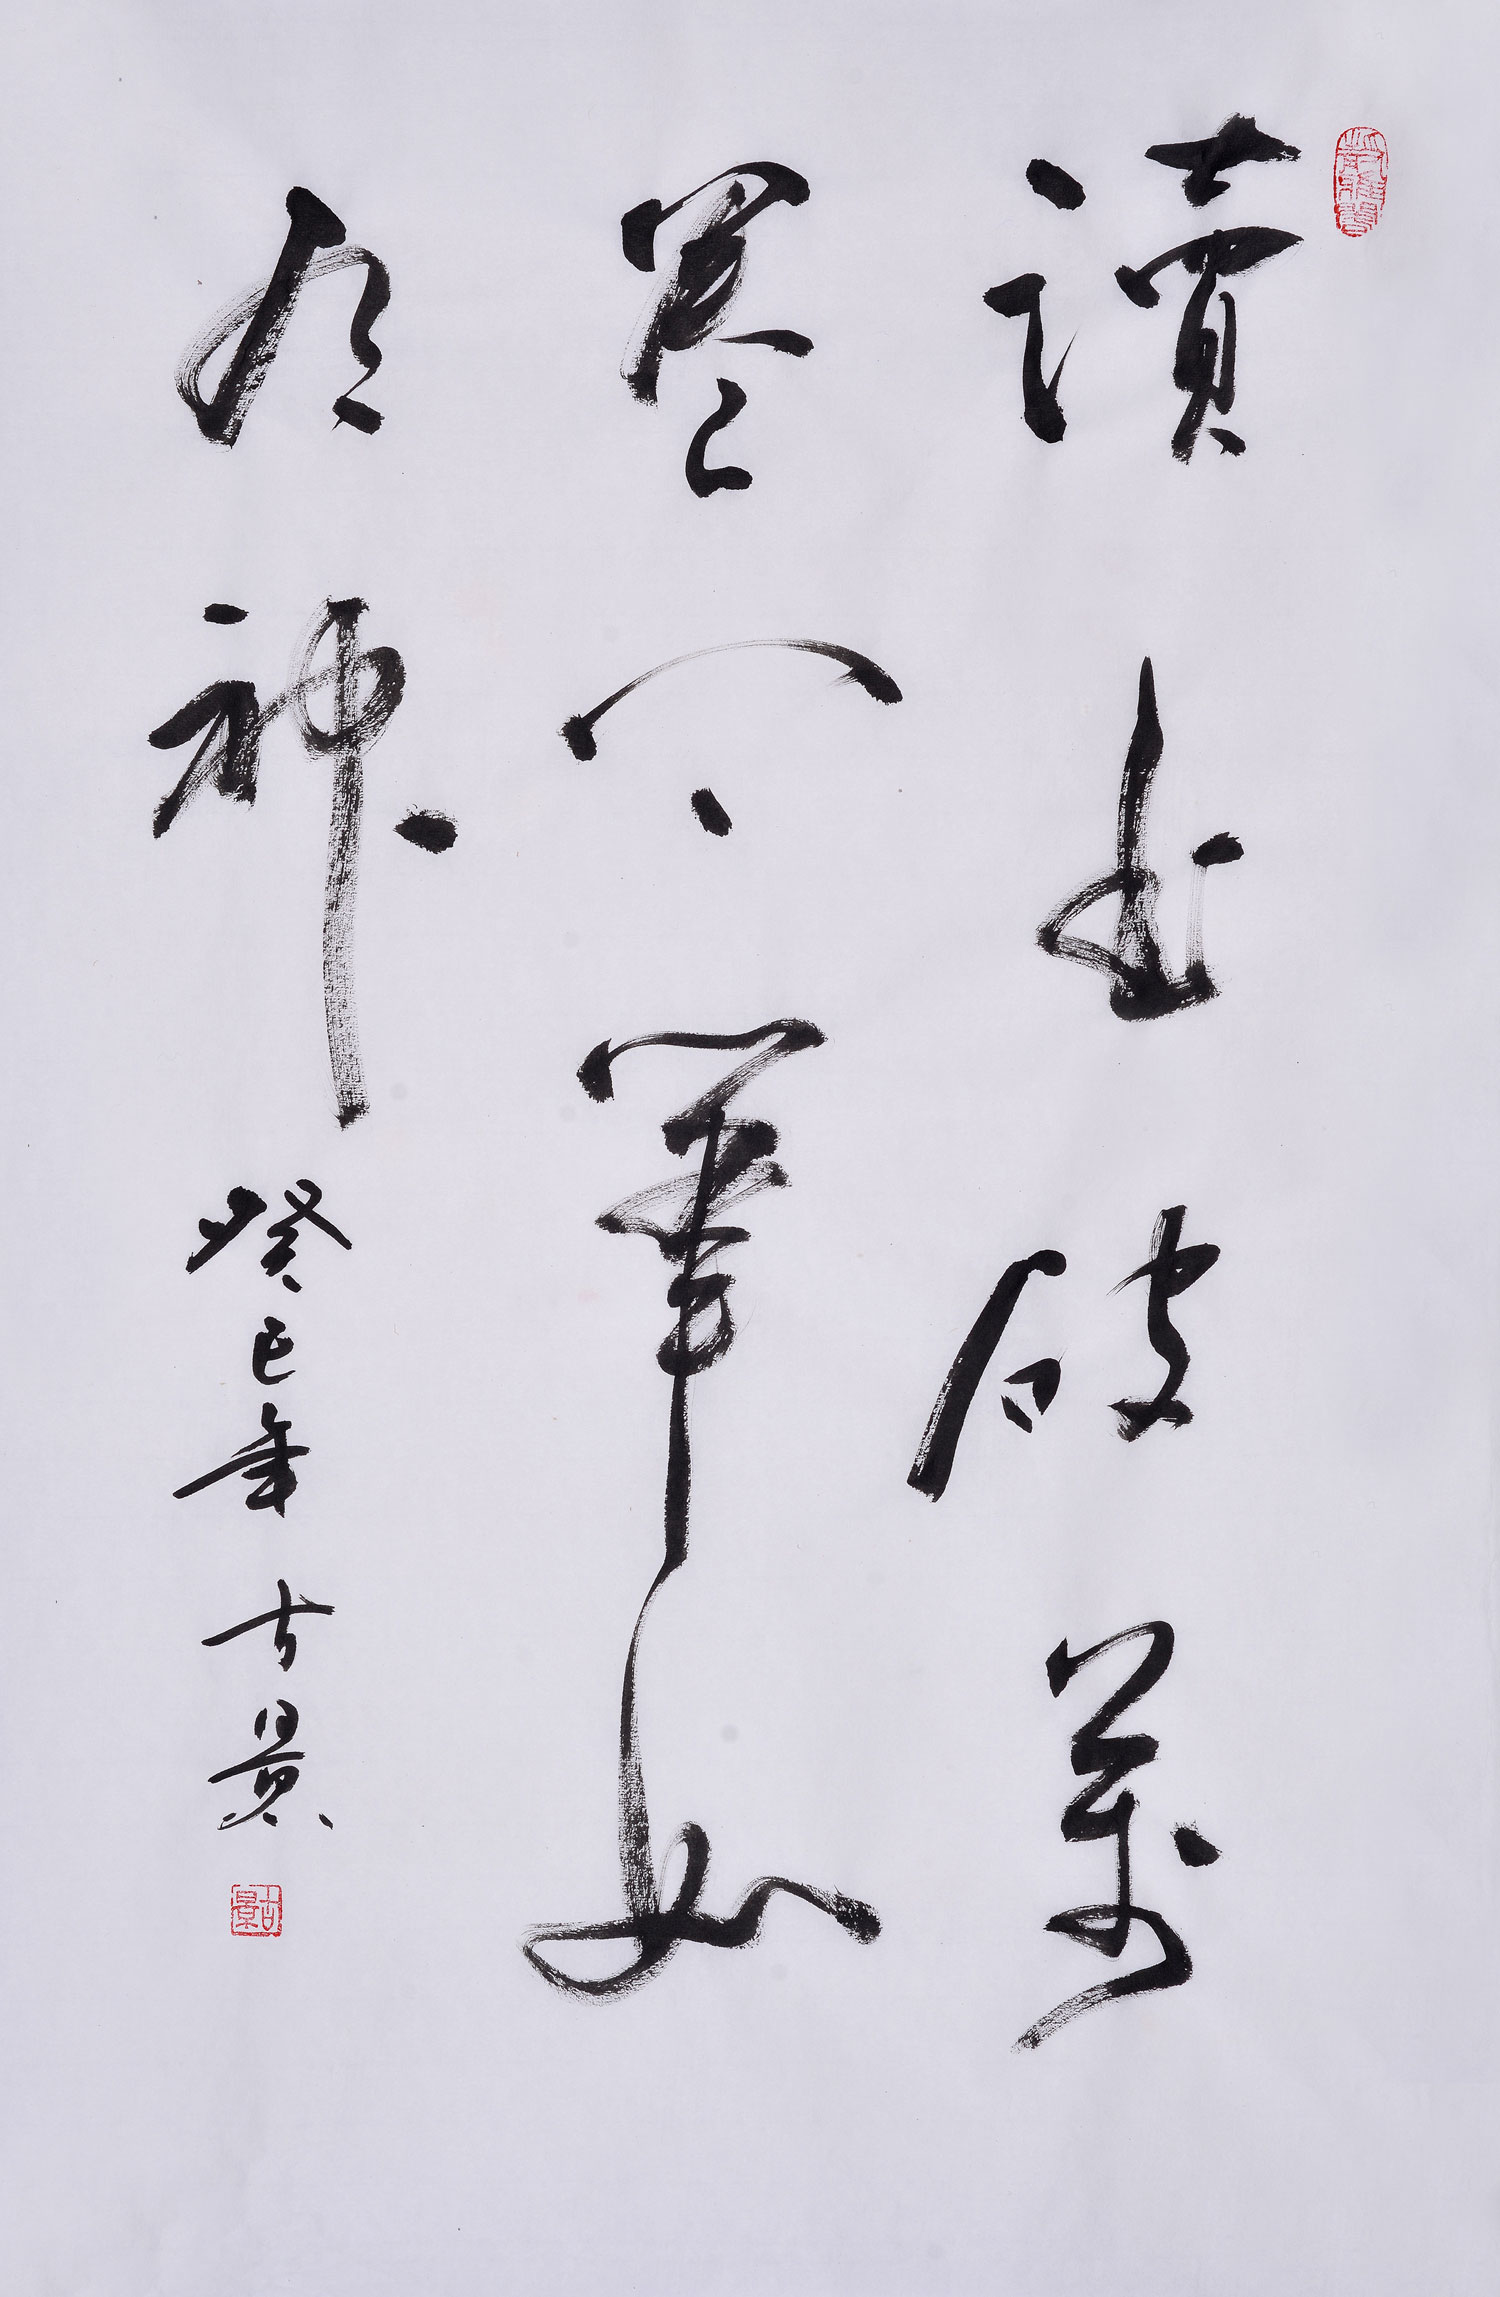 讀書破萬
卷下筆如
有神
癸巳年 古景
古景